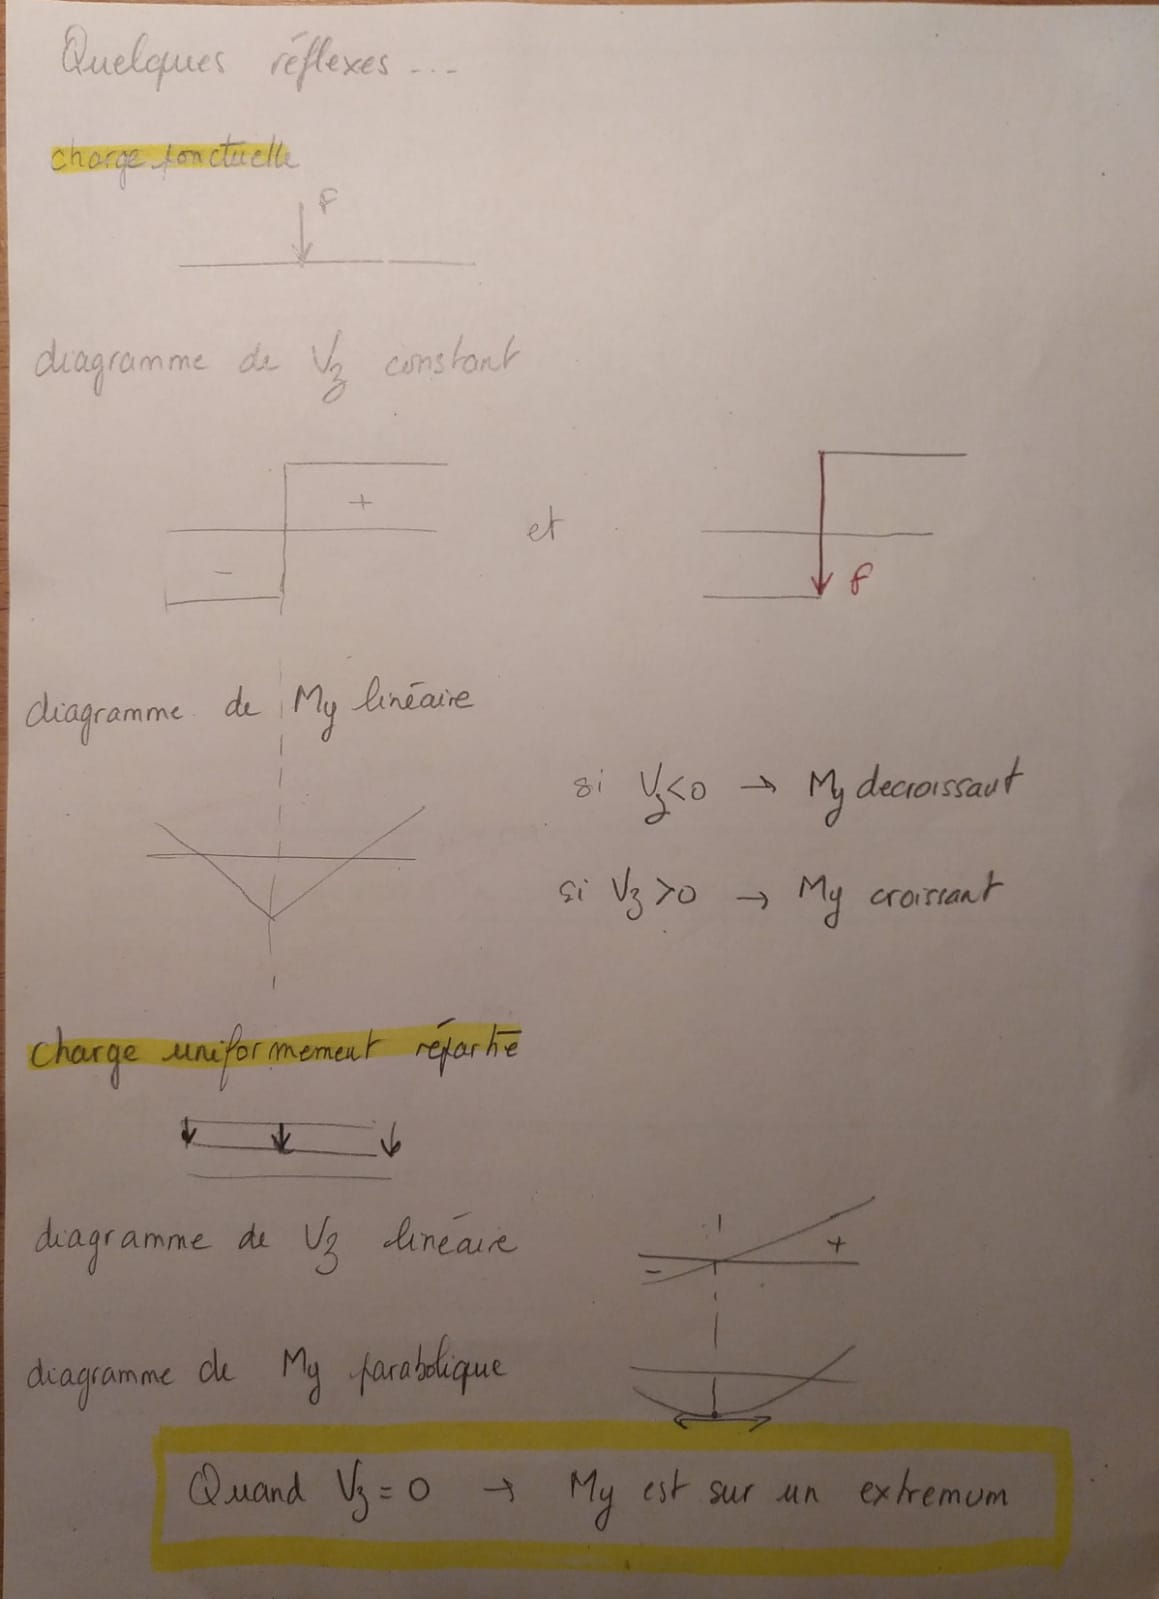 Quelques réflexes ...
charge ponctuelle
F
diagramme de Vz constant
+
-
et
F
diagramme de My linéaire
si Vz<0 → My decroissant
si Vz>0 → My croissant
charge uniformement répartie
diagramme de Vz linéaire
- +
diagramme de My parabolique
Quand Vz = 0 → My est sur un extremum